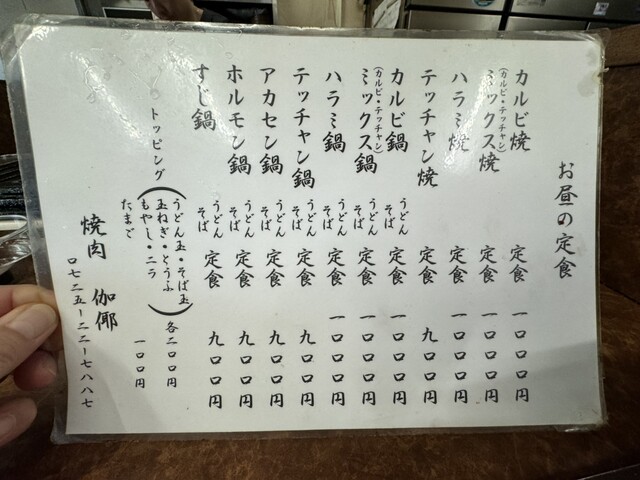 お昼の定食
カルビ焼 定食 一〇〇〇円
ミックス焼 (カルビ・テッチャン) 定食 一〇〇〇円
ハラミ焼 定食 一〇〇〇円
テッチャン焼 定食 九〇〇円
カルビ鍋 うどん 定食 一〇〇〇円
ミックス鍋 (カルビ・テッチャン) うどん そば 定食 一〇〇〇円
ハラミ鍋 うどん そば 定食 一〇〇〇円
テッチャン鍋 うどん そば 定食 九〇〇円
アカセン鍋 うどん そば 定食 九〇〇円
ホルモン鍋 うどん そば 定食 九〇〇円
すじ鍋 うどん そば 定食 九〇〇円
トッピング (うどん玉・そば玉
玉ねぎ・とうふ 各二〇〇円
もやし・ニラ)
たまご 一〇〇円
焼肉 伽倻
〇七二五-二二-七八八七